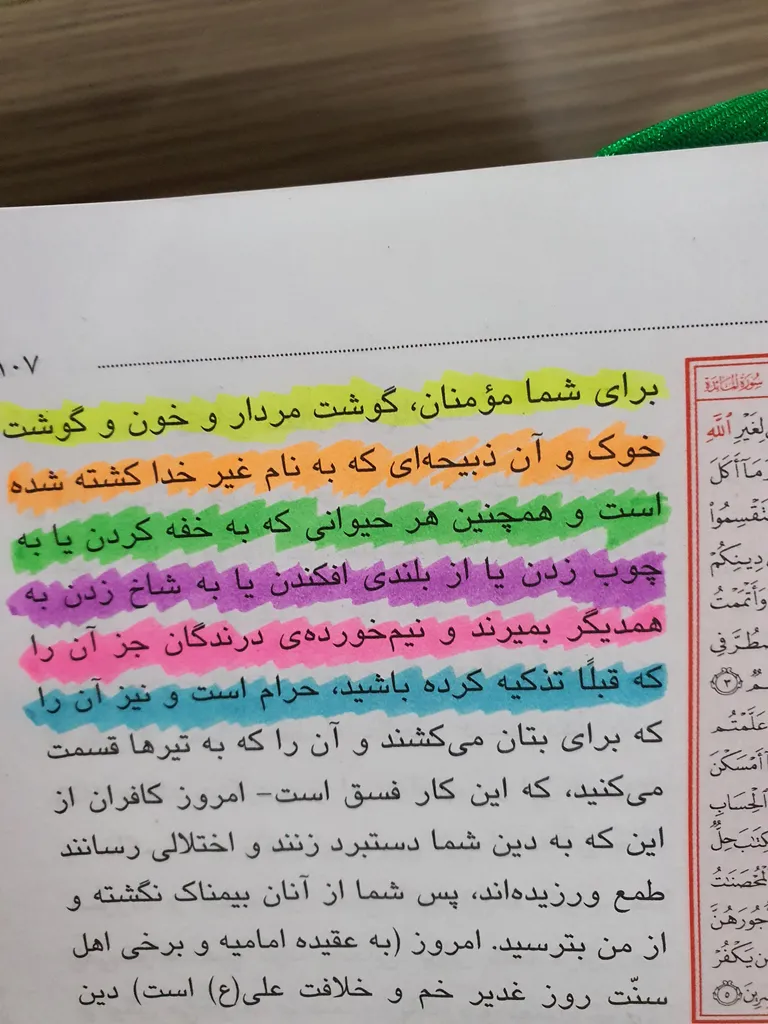 ۱۰۷
برای شما مؤمنان، گوشت مردار و خون و گوشت
خوک و آن ذبیحه‌ای که به نام غیر خدا کشته شده
است و همچنین هر حیوانی که به خفه کردن یا به
چوب زدن یا از بلندی افکندن یا به شاخ زدن به
همدیگر بمیرند و نیم‌خورده‌ی درندگان جز آن را
که قبلًا تذکیه کرده باشید، حرام است و نیز آن را
که برای بتان می‌کشند و آن را که به تیرها قسمت
می‌کنید، که این کار فسق است- امروز کافران از
این که به دین شما دستبرد زنند و اختلالی رسانند
طمع ورزیده‌اند، پس شما از آنان بیمناک نگشته و
از من بترسید. امروز (به عقیده امامیه و برخی اهل
سنّت روز غدیر خم و خلافت علی(ع) است) دین
سُورَةُ المَائِدَة
لِغَيْرِ ٱللَّهِ
وَمَآ أَكَلَ
تَسْتَقْسِمُوا۟
دِينِكُمْ
وَأَتْمَمْتُ
ٱضْطُرَّ فِى
۳
عَلَّمْتُم
أَمْسَكْنَ
ٱلْحِسَابِ
ٱلْكِتَٰبَ حِلٌّ
ٱلْمُحْصَنَٰتُ
أُجُورَهُنَّ
مَن يَكْفُرْ
۵